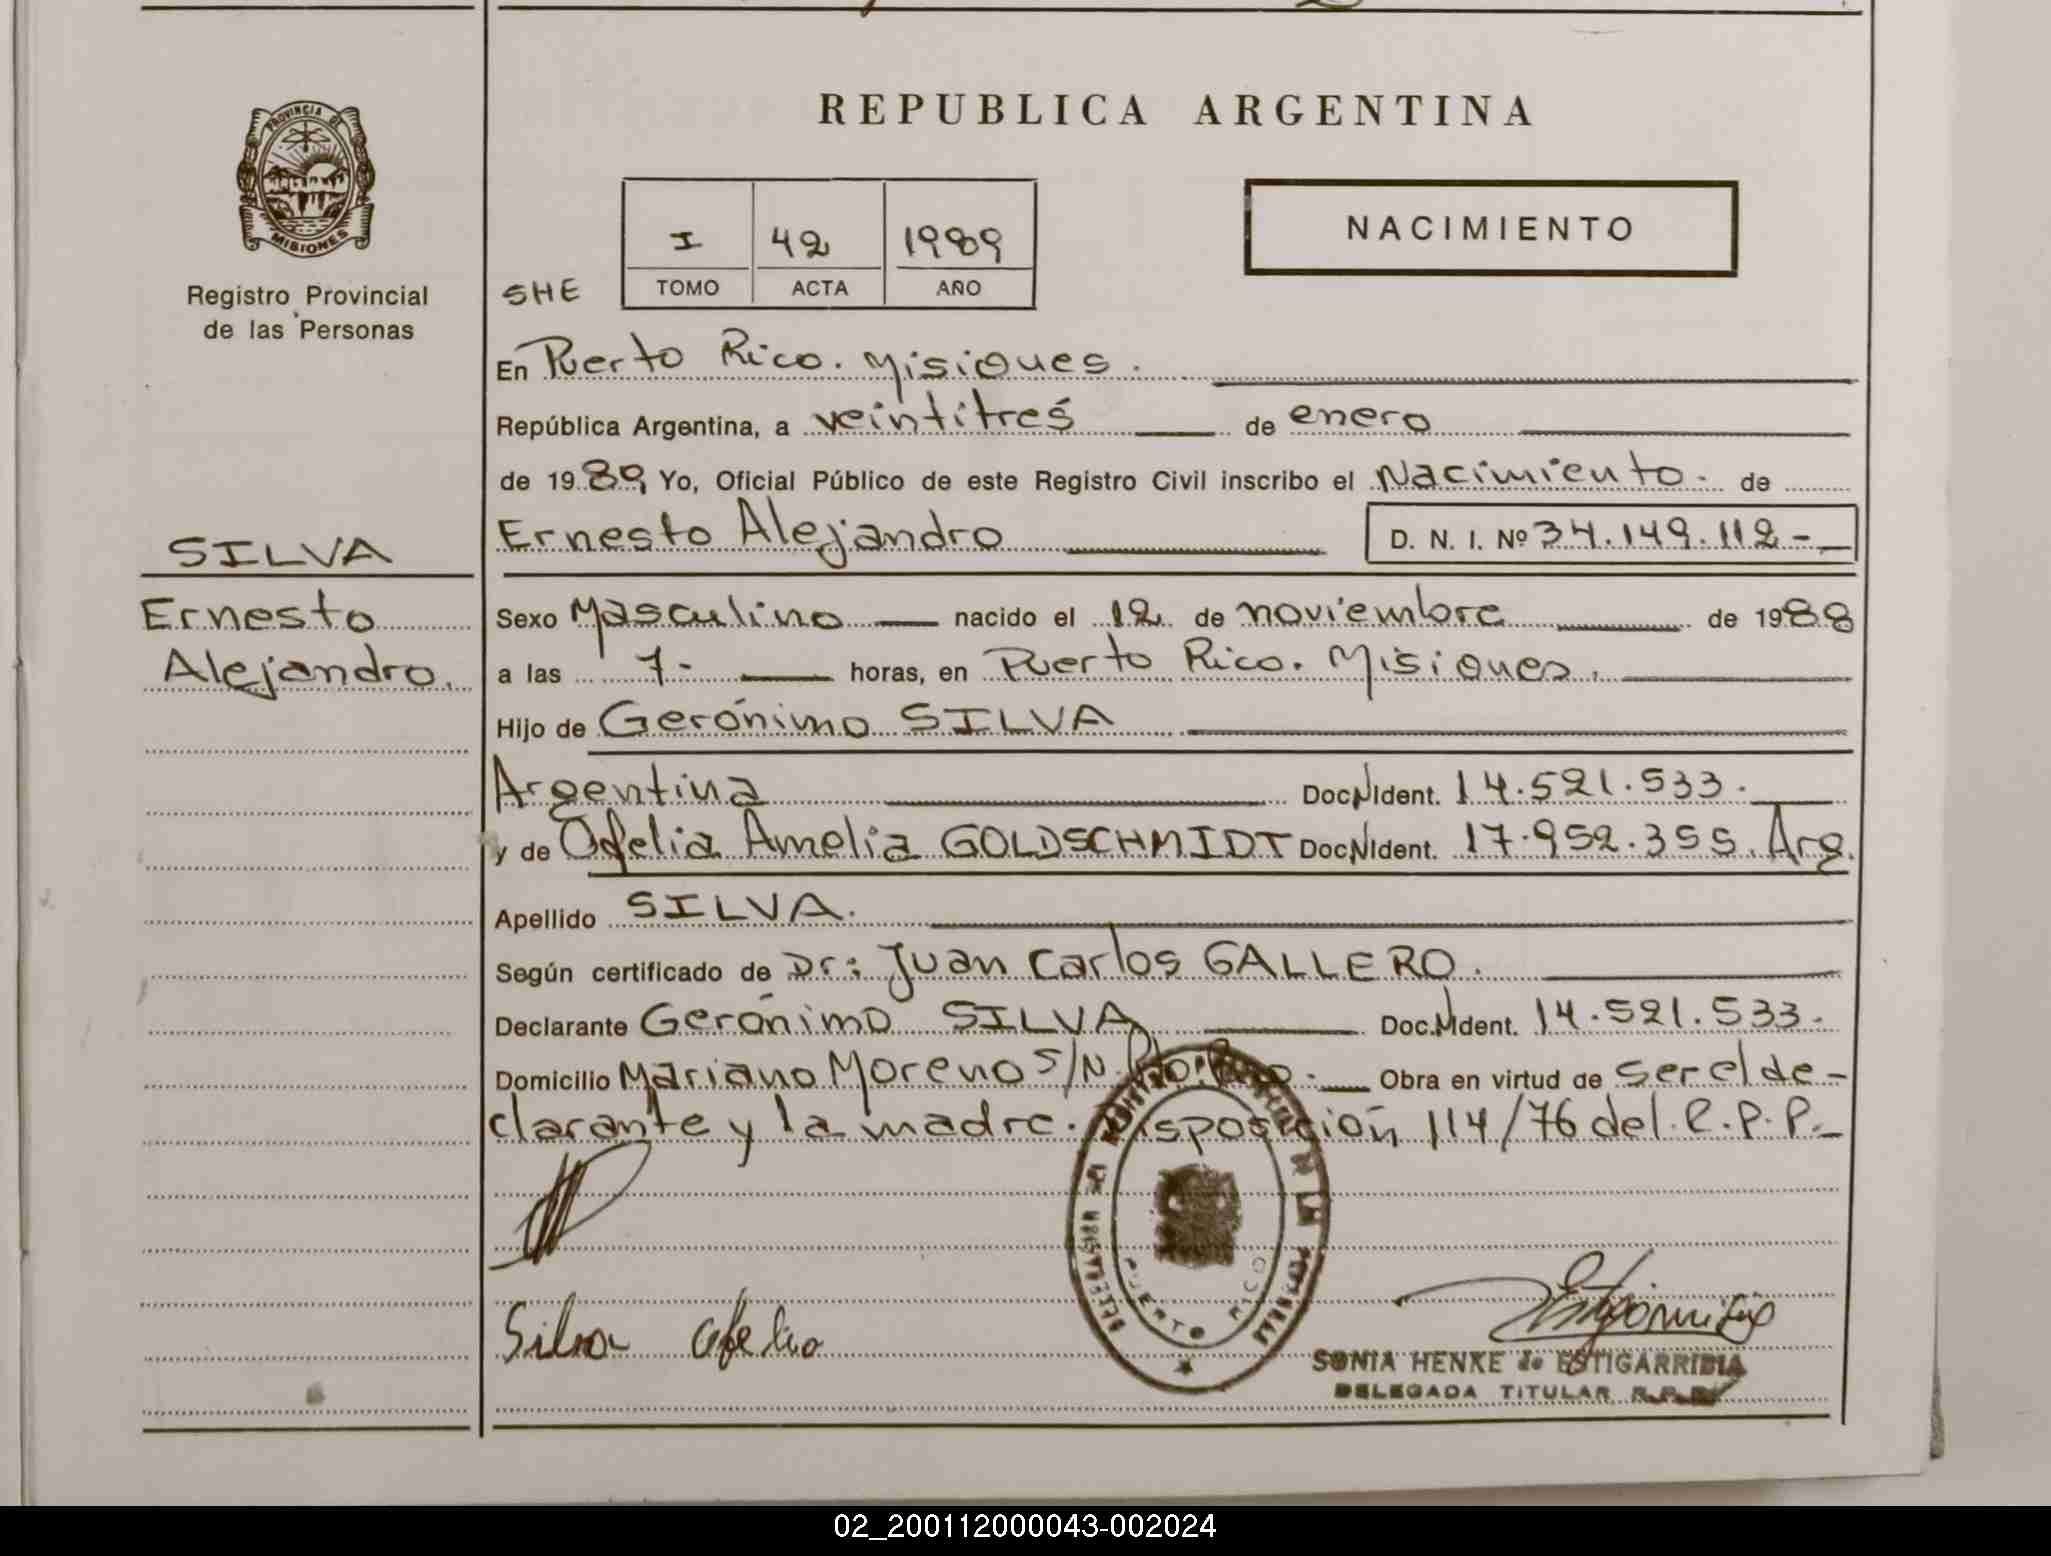 REPUBLICA ARGENTINA
PROVINCIA DE
MISIONES
Registro Provincial
de las Personas
I 42 1989
TOMO ACTA AÑO
NACIMIENTO
SHE
En Puerto Rico. Misiones.
República Argentina, a veintitrés de enero
de 1989 Yo, Oficial Público de este Registro Civil inscribo el Nacimiento. de
SILVA
Ernesto
Alejandro.
Ernesto Alejandro D. N. I. Nº 34.149.112-
Sexo Masculino nacido el 12 de noviembre de 1988
a las 7- horas, en Puerto Rico. Misiones.
Hijo de Gerónimo SILVA
Argentina Doc.N.Ident. 14.521.533.
y de Ofelia Amelia GOLDSCHMIDT Doc.N.Ident. 17.952.355. Arg.
Apellido SILVA.
Según certificado de Dr: Juan Carlos GALLERO.
Declarante Gerónimo SILVA Doc.N.Ident. 14.521.533.
Domicilio Mariano Moreno S/N. Pto. Rico. Obra en virtud de ser el de-
clarante y la madre. Disposición 114/76 del R.P.P.-
Silva Ofelia
PUERTO RICO
SONIA HENKE de ESTIGARRIBIA
DELEGADA TITULAR R.P.P.
02_200112000043-002024